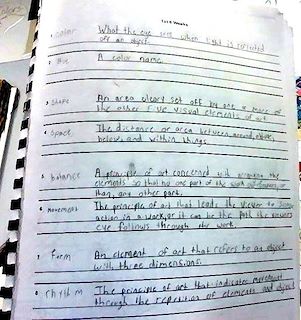 1st 6 Weeks
• Color What the eye sees when light is reflected
off an object.
• Hue A color name.
• Shape An area cleary set off by one or more of
the other five visual elements of art.
• Space The distance or area between, around, above,
below, and within things.
• balance A principle of art concerned with arranging the
elements so that no one part of the work
than, any other part.
• Movement The principle of art that leads the viewer to
action in a work, or it can be the path the viewers
eye follows through the work.
• Form An element of art that refers to an object
with three dimensions.
• rhythm The principle of art that indicates movement
through the repetition of elements and object